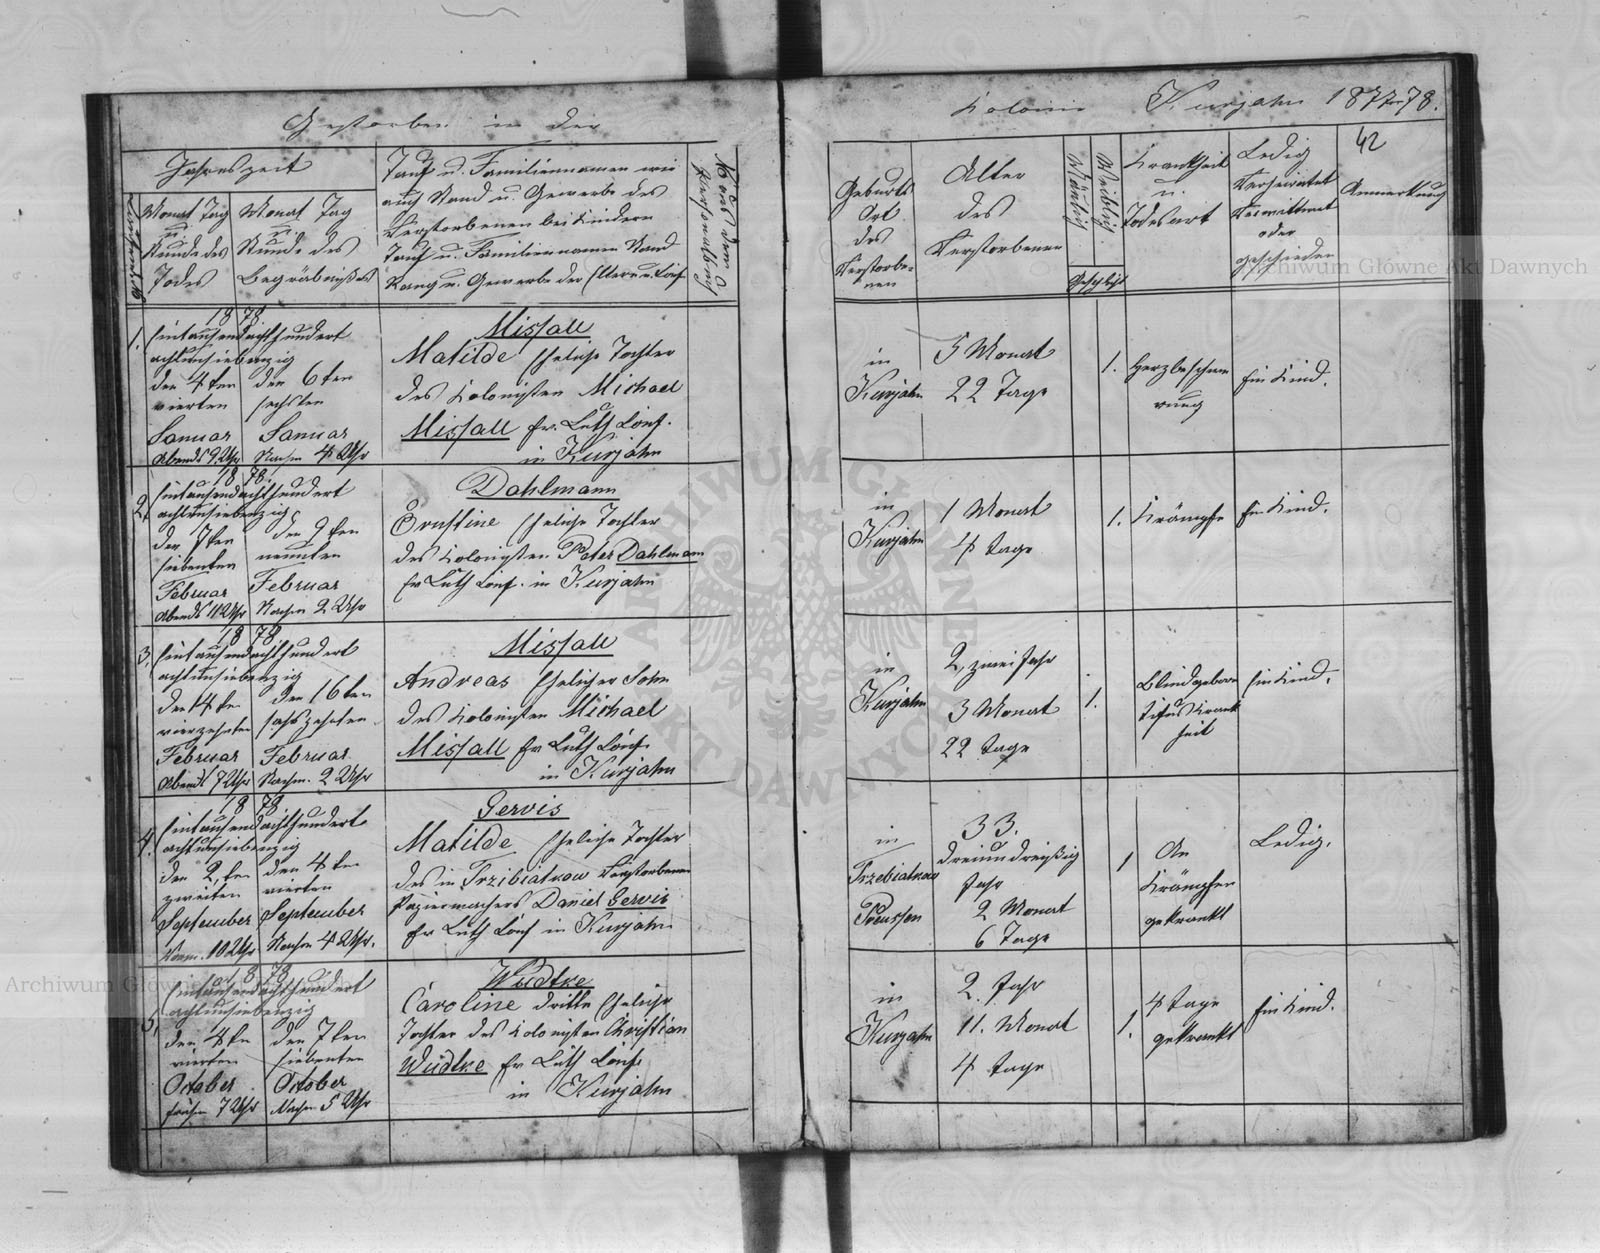 Gestorben in der Kolonie Kurjahn 1877-78.
42
Jahreszeit
Monat Tag
u.
Stunde des
Todes
Monat Tag
u.
Stunde des
Begräbnißes
Tauf u. Familiennamen wie
auch Stand u. Gewerbe des
Verstorbenen bei Kindern
Tauf u. Familiennamen Stand
Rang u. Gewerbe der Eltern u. Conf.
Geburts
Ort
des
Verstorbe-
nen
Alter
des
Verstorbenen
Männlich
Weiblich
Geschlecht
Krankheit
u.
Todesart
Ledig
Verheirathet
Verwittwet
oder
geschieden
Anmerkung
1.
1878.
Eintausendachthundert
achtunsiebenzig
den 4ten
vierten
Januar
Abends 9 Uhr
den 6ten
sechsten
Januar
Nachm 4 Uhr
Missall
Matilde Eheliche Tochter
des Kolonisten Michael
Missall Ev. Luth Conf.
in Kurjahn
in
Kurjahn
5 Monat
22 Tage
1.
Ein Kind.
2.
1878.
Eintausendachthundert
achtunsiebenzig
den 7ten
siebenten
Februar
Abends 11 Uhr
den 9ten
neunten
Februar
Nachm 2 Uhr
Dahlmann
Ernstine Eheliche Tochter
des Kolonisten Peter Dahlmann
Ev Luth Conf. in Kurjahn
in
Kurjahn
1 Monat
4 Tage
1.
Krämpfe
Ein Kind.
3.
1878
Eintausendachthundert
achtunsiebenzig
den 14ten
vierzehnten
Februar
Abends 7 Uhr
den 16ten
sechszehnten
Februar.
Nachm. 2 Uhr
Missall
Andreas Ehelicher Sohn
des Kolonisten Michael
Missall Ev Luth Conf.
in Kurjahn
in
Kurjahn
2, zwei Jahr
3 Monat
22 Tage
1.
Blindgeboren
Tifus Krank
heit
Ein Kind.
4.
1878
Eintausendachthundert
achtunsiebenzig
den 2ten
zweiten
September
Vorm. 10 Uhr
den 4ten
vierten
September
Nachm 4 Uhr.
Gervis
Matilde Eheliche Tochter
des in Trzibiatkow Verstorbenen
Papiermachers Daniel Gervis
Ev Luth Conf in Kurjahn
in
Trzebiatkow
Preussen
33.
dreiundreißig
Jahr
2 Monat
6 Tage
1
An
Krämpfen
gekrankt
Ledig.
5.
1878
Eintausendachthundert
achtunsiebenzig
den 4ten
vierten
October
früh 7 Uhr
den 7ten
siebenten
October
Nachm 5 Uhr
Wüdtke
Caroline dritte Eheliche
Tochter des Kolonisten Christian
Wüdtke Ev Luth Conf.
in Kurjahn
in
Kurjahn
2. Jahr
11. Monat
4 Tage
1.
4 Tage
gekrankt
Ein Kind.
Archiwum Główne Akt Dawnych
ARCHIWUM GŁÓWNE AKT DAWNYCH
Archiwum Główne Akt Dawnych